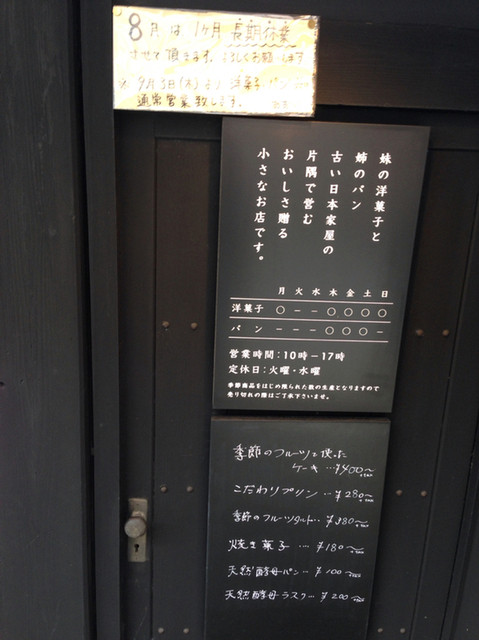 8月は、1ヶ月 長期休業
させて頂きます。よろしくお願いします
※9月3日(木)より 洋菓子・パン共
通常営業致します。
妹の洋菓子と
姉のパン
古い日本家屋の
片隅で営む
おいしさ贈る
小さなお店です。
月 火 水 木 金 土 日
洋菓子 ○ - - ○ ○ ○ ○
パン - - - ○ ○ ○ -
営業時間：10時－17時
定休日：火曜・水曜
季節商品をはじめ限られた数の生産となりますので
売り切れの際はご了承下さいませ。
季節のフルーツを使った
ケーキ …¥400～+tax
こだわりプリン … ¥280～+tax
季節のフルーツタルト… ¥380～+tax
焼き菓子 … ¥180～+tax
天然酵母パン… ¥100～+tax
天然酵母ラスク… ¥200～+tax